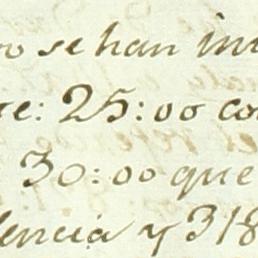 se han in
re: 25:00 co
30:00 que
lencia y 318